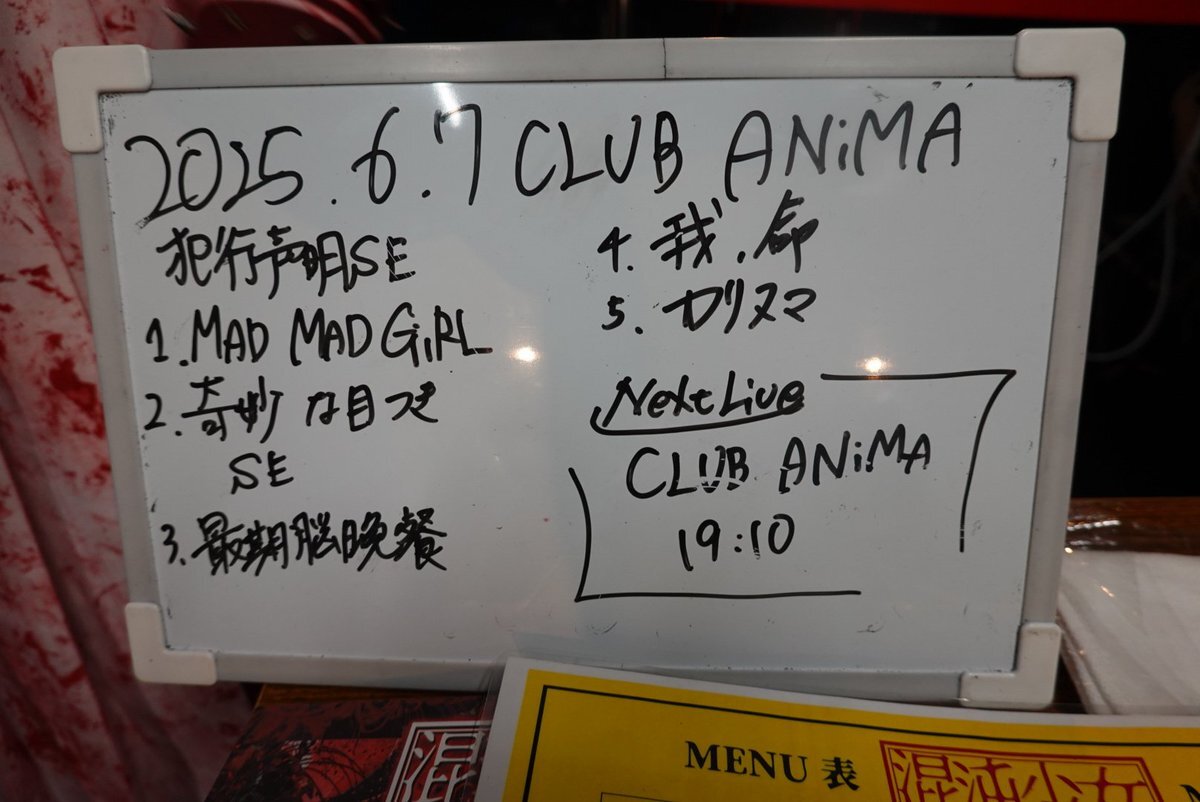 2025.6.7 CLUB ANiMA
犯行声明SE
1. MAD MAD GiRL
2. 奇妙な目つき
SE
3. 最期脳晩餐
4. 我、命
5. カリスマ
Next Live
CLUB ANiMA
19:10
混
MENU 表
混沌少女